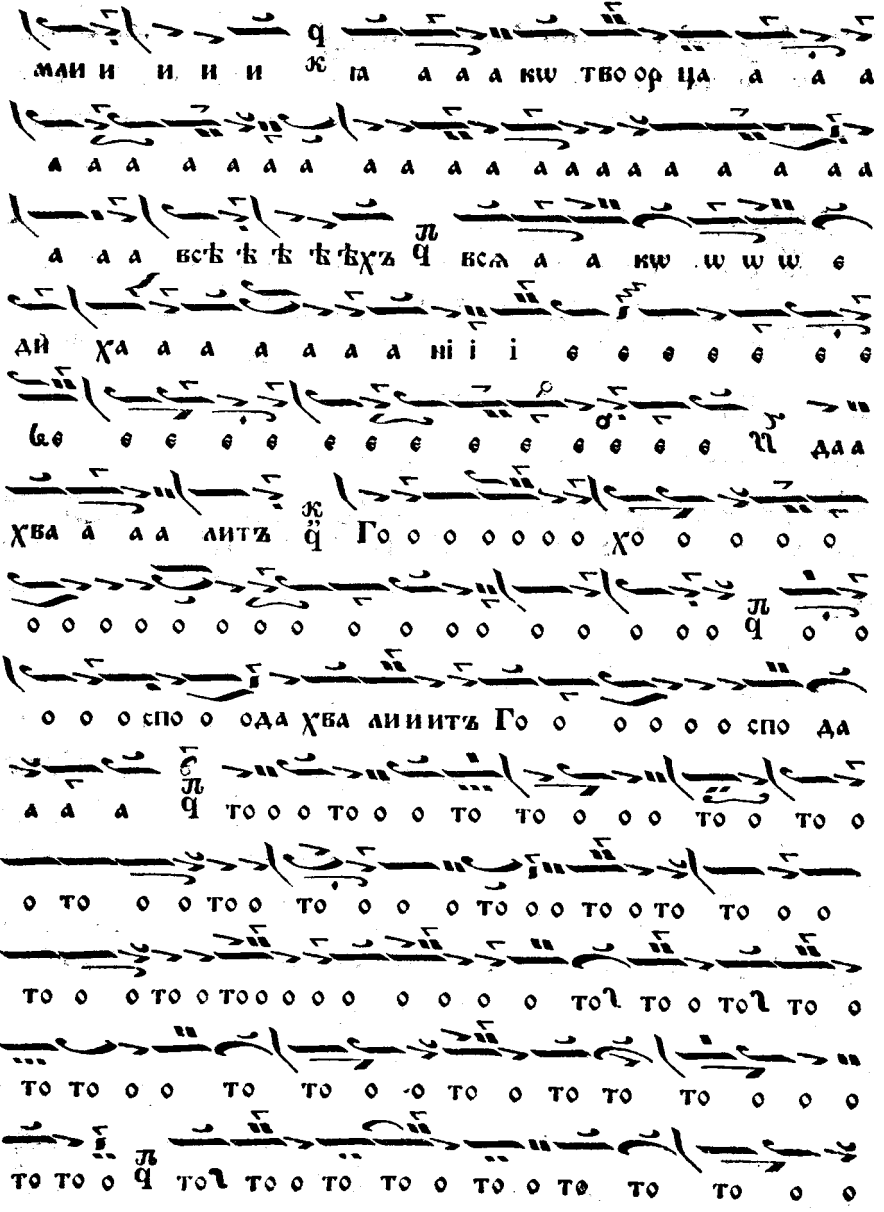 мли и и и и q к ıа а а а кѡ тво ор ца а а а
а а а а а а а а а а а а а а а а а а а а
а а а всѣ ѣ ѣ ѣ ѣхъ п q всѧ а а кѡ ѡ ѡ ѡ е
ди ха а а а а а а ні і і е е е е е е е
е е е е е е е е е е е е е да а
хва а а а литъ к q Го о о о о о о хо о о о о
о о о о о о о о о о о о о о о о о о о п q о о
о о о спо о ода хва ли и итъ Го о о о о о спо да
а а а п q то о о то о о то то о о о то о то о
о то о о то о то о о о о то о о то о то то о о
то о о то о то о о о о о о о о то то о то то о
то то о о то то о о то о то то то о о о
то то о п q то то о то то о то о то то то о о